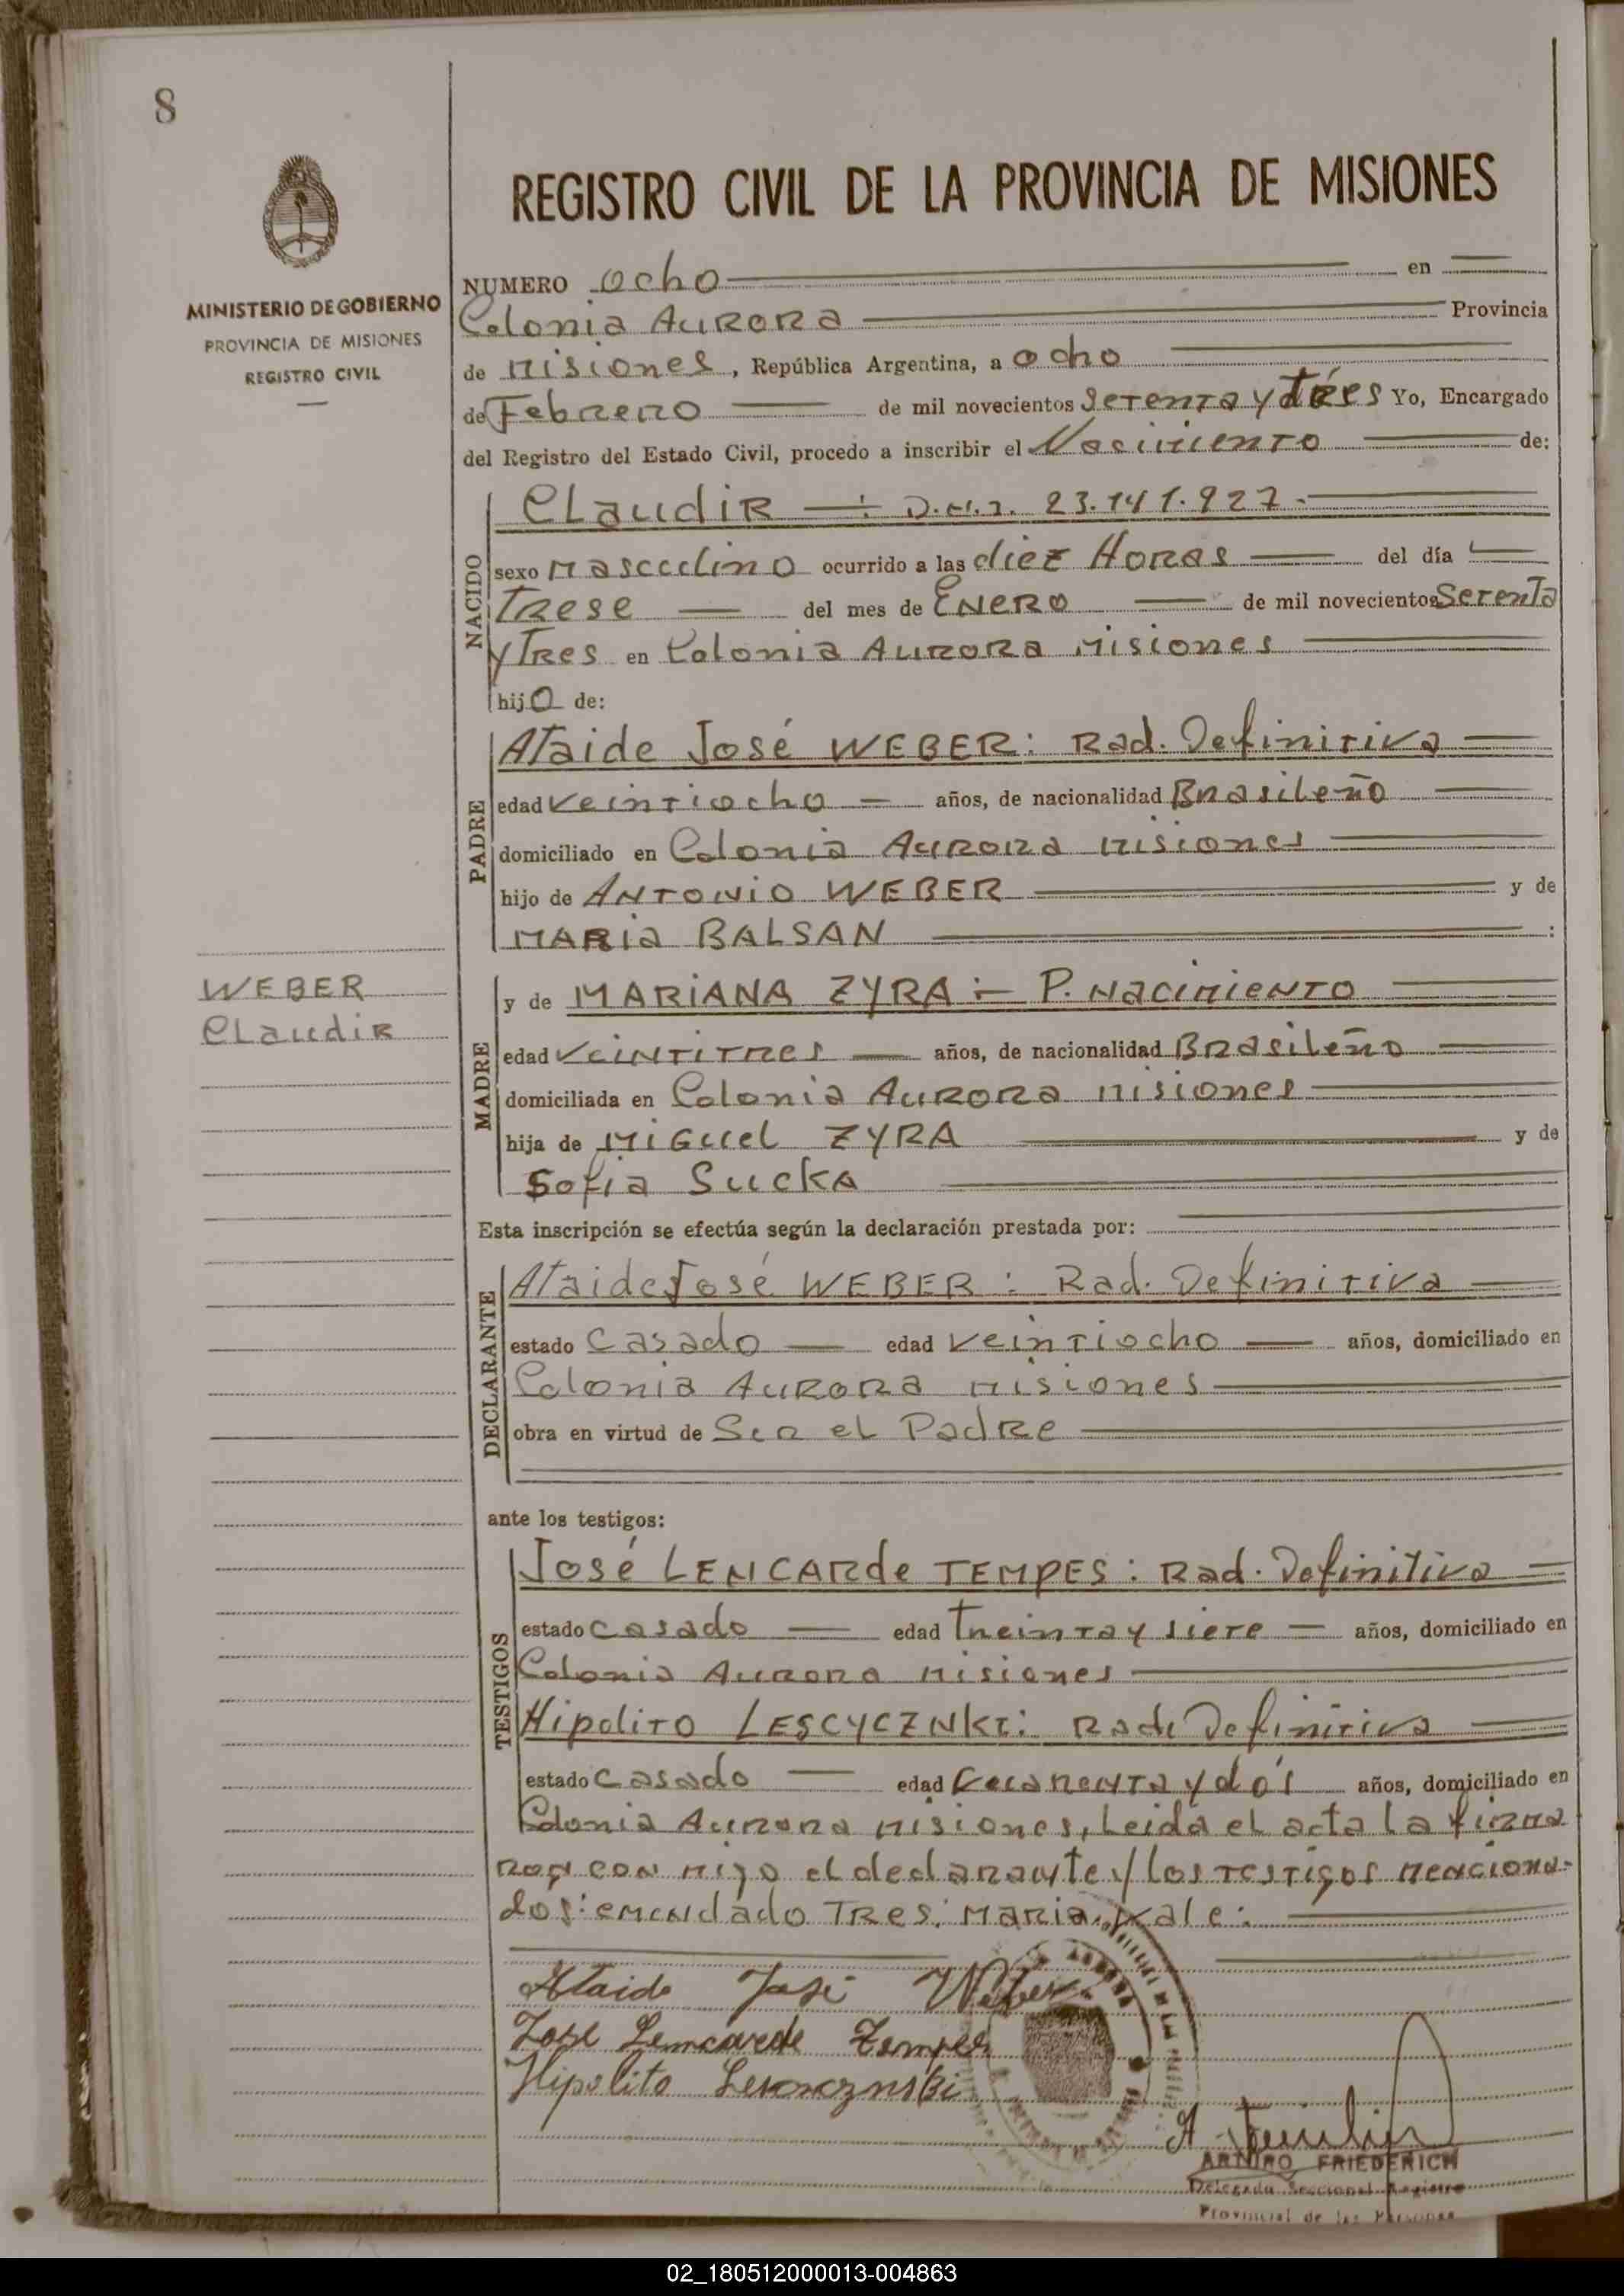 8
MINISTERIO DE GOBIERNO
PROVINCIA DE MISIONES
REGISTRO CIVIL
REGISTRO CIVIL DE LA PROVINCIA DE MISIONES
NUMERO ocho en
Colonia AURORA Provincia
de Misiones, República Argentina, a ocho
de Febrero de mil novecientos setenta y tres Yo, Encargado
del Registro del Estado Civil, procedo a inscribir el Nacimiento de:
NACIDO
Claudir D.N.I. 23.141.927.
sexo Masculino ocurrido a las diez Horas del día
Trese del mes de ENERO de mil novecientos Setenta
y Tres en Colonia AURORA Misiones
hijo de:
PADRE
Ataide José WEBER: Rad. Definitiva
edad veintiocho años, de nacionalidad Brasileño
domiciliado en Colonia AURORA Misiones
hijo de ANTONIO WEBER y de
MARIA BALSAN :
WEBER
Claudir
MADRE
y de MARIANA ZYRA P. Nacimiento
edad veintitres años, de nacionalidad Brasileño
domiciliada en Colonia AURORA Misiones
hija de Miguel ZYRA y de
Sofia Sucka
Esta inscripción se efectúa según la declaración prestada por:
DECLARANTE
Ataide José WEBER: Rad. Definitiva
estado casado edad veintiocho años, domiciliado en
Colonia AURORA Misiones
obra en virtud de Ser el Padre
ante los testigos:
TESTIGOS
José LEMCARde TEMPES: Rad. Definitiva
estado casado edad treinta y siete años, domiciliado en
Colonia Aurora Misiones
Hipolito LESCYCZNKI: Rad. Definitiva
estado casado edad cuarenta y dós años, domiciliado en
Colonia Aurora Misiones, Leida el acta la firma
ron con migo el declarante y los testigos menciona-
dos: emendado Tres. Maria. Vale:
Ataide José Weber
José Lemcarde Tempes
Hipolito
ARTURO FRIEDERICH
Delegado Seccional Registro
Provincial de las Personas
02_180512000013-004863